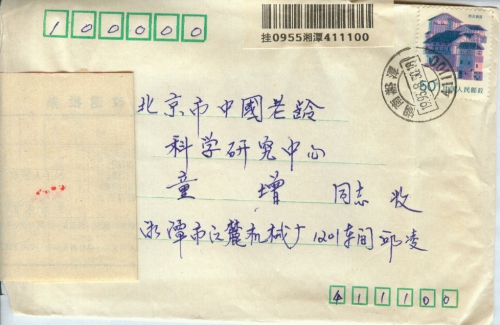 100000
挂0955湘潭411100
50
中国人民邮政
北京市中國老龄
科学研究中心
童增 同志 收
湘潭市江麓机械厂1201车间邱凌
411100